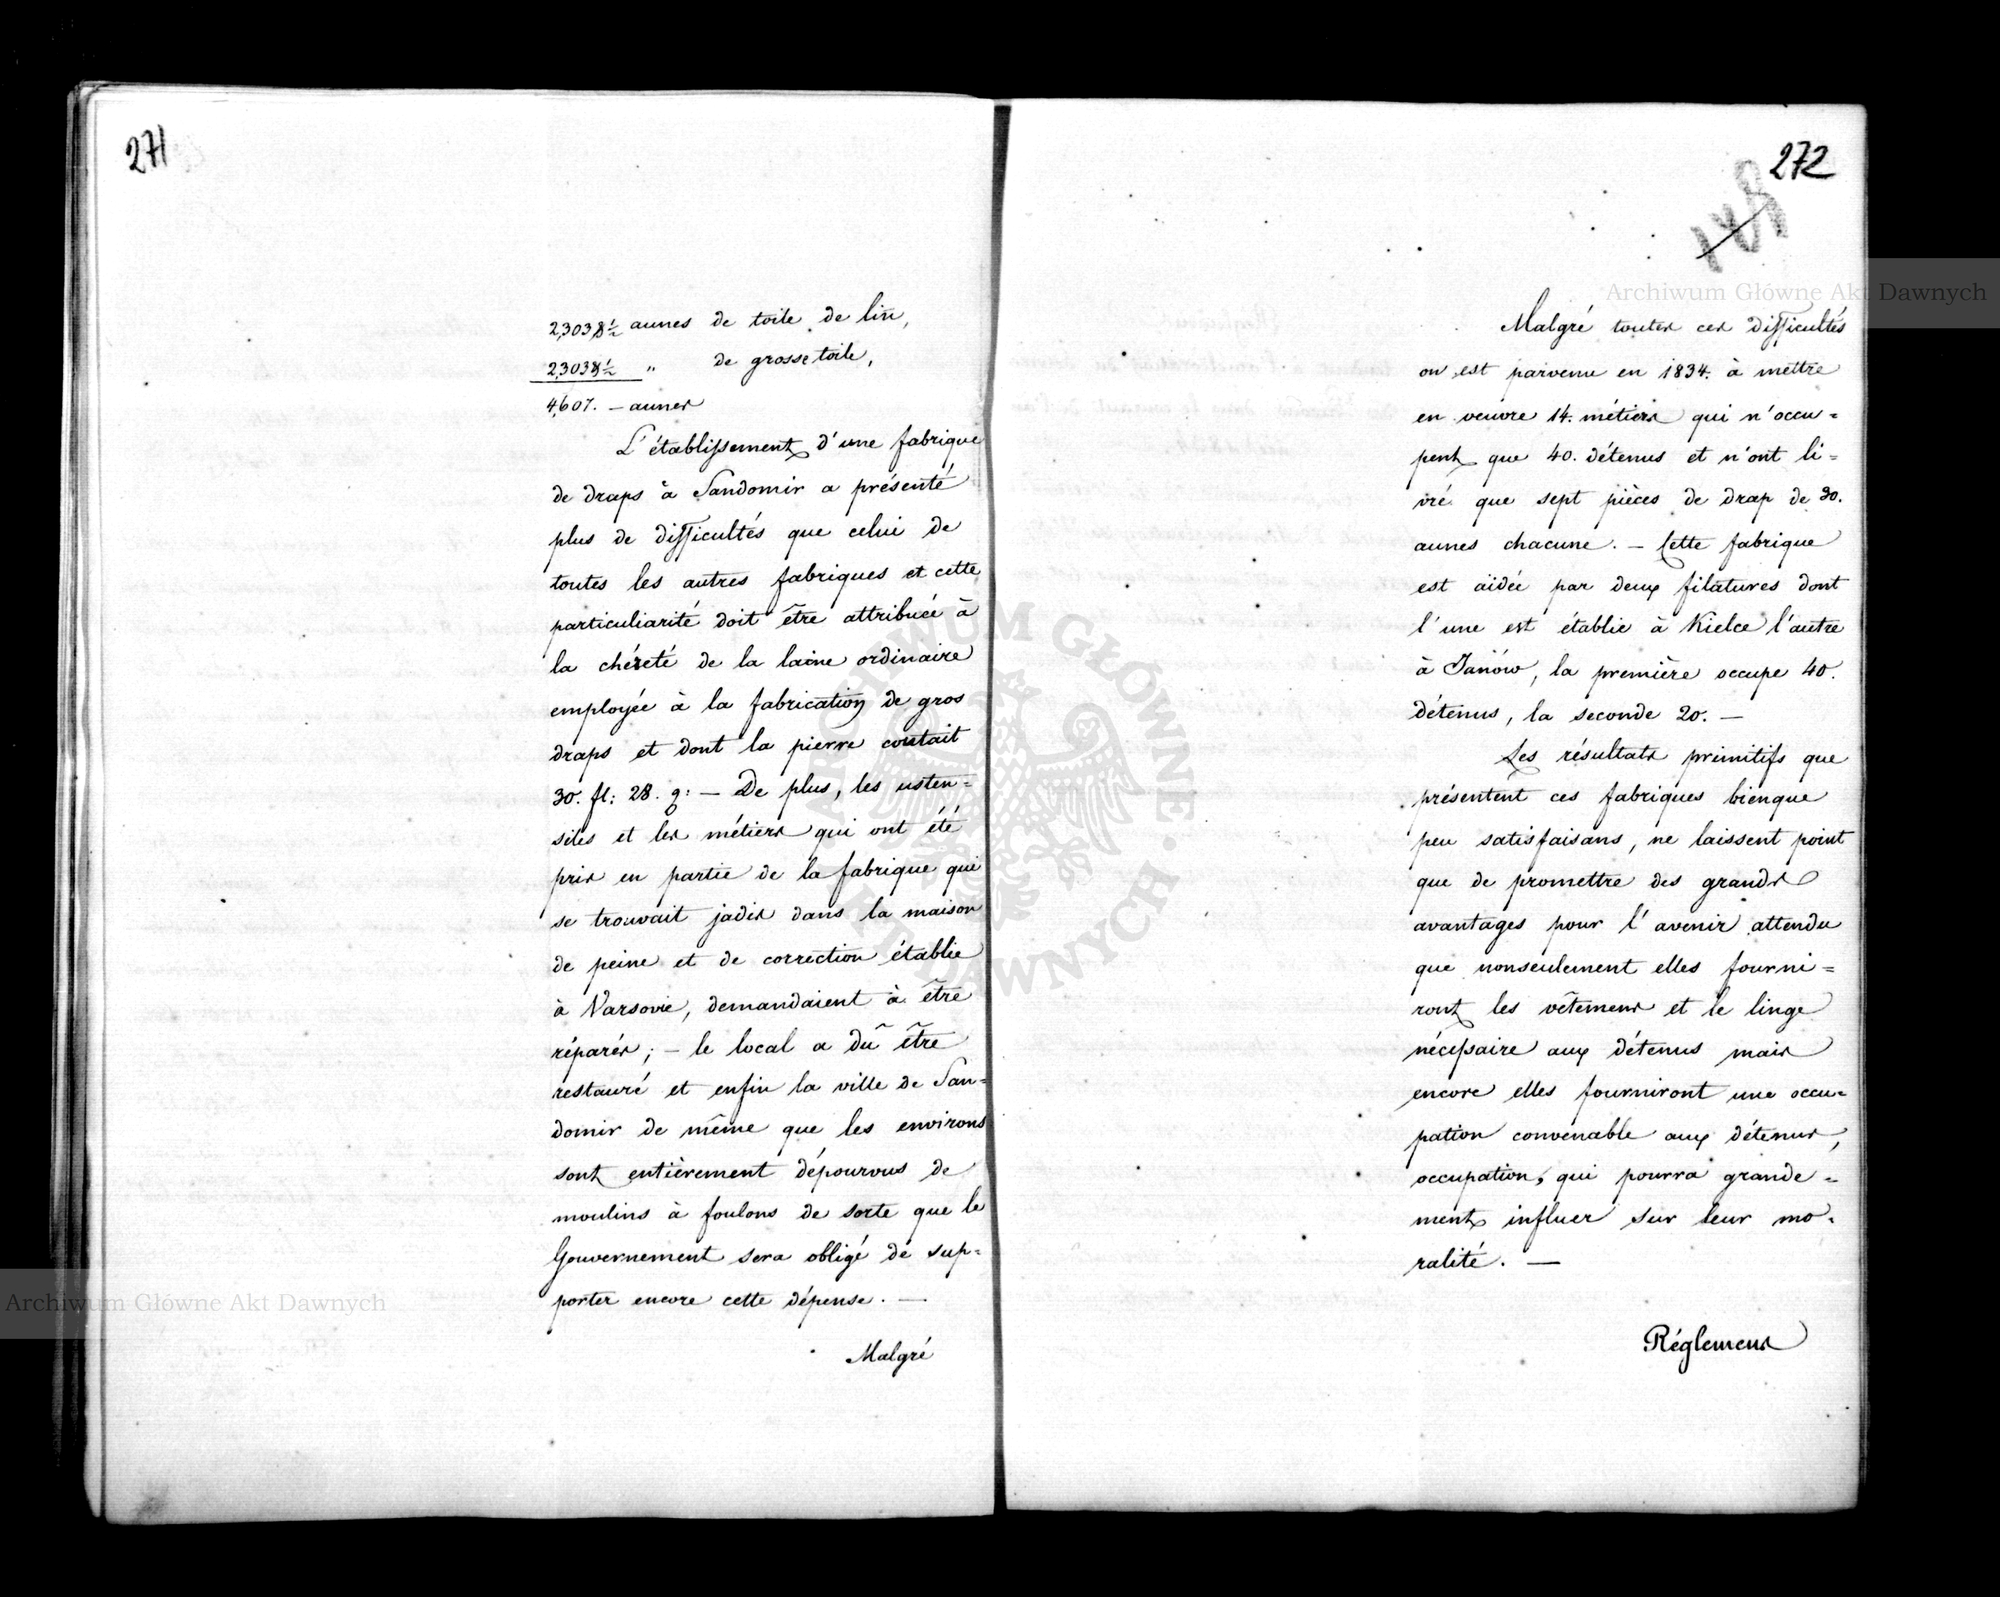 271
2,303 8½ aunes de toile de lin,
2,303 8½ " de grosse toile,
4,607. — aunes
L'établissement d'une fabrique
de draps à Sandomir a présenté
plus de difficultés que celui de
toutes les autres fabriques et cette
particuliarité doit être attribuée à
la chéreté de la laine ordinaire
employée à la fabrication de gros
draps et dont la pierre coutait
30. fl: 28. g: — De plus, les usten=
siles et les métiers qui ont été
pris en partie de la fabrique qui
se trouvait jadis dans la maison
de peine et de correction établie
à Varsovie, demandaient à être
réparés; — le local a dû être
restauré et enfin la ville de San=
domir de même que les environs
sont entièrement dépourvus de
moulins à foulons de sorte que le
Gouvernement sera obligé de sup=
porter encore cette dépense. —
Malgré
272
148
Malgré toutes ces difficultés
on est parvenu en 1834. à mettre
en oeuvre 14. métiers qui n'occu=
pent que 40. détenus et n'ont li=
vré que sept pièces de drap de 30.
aunes chacune. — Cette fabrique
est aidée par deux filatures dont
l'une est établie à Kielce l'autre
à Janów, la première occupe 40.
détenus, la seconde 20. —
Les résultats primitifs que
présentent ces fabriques bienque
peu satisfaisans, ne laissent point
que de promettre des grands
avantages pour l'avenir attendu
que nonseulement elles fourni=
ront les vêtemens et le linge
nécessaire aux détenus mais
encore elles fourniront une occu=
pation convénable aux détenus,
occupation, qui pourra grande=
ment influer sur leur mo=
ralité. —
Réglemens
Archiwum Główne Akt Dawnych
Archiwum Główne Akt Dawnych
ARCHIWUM GŁÓWNE AKT DAWNYCH